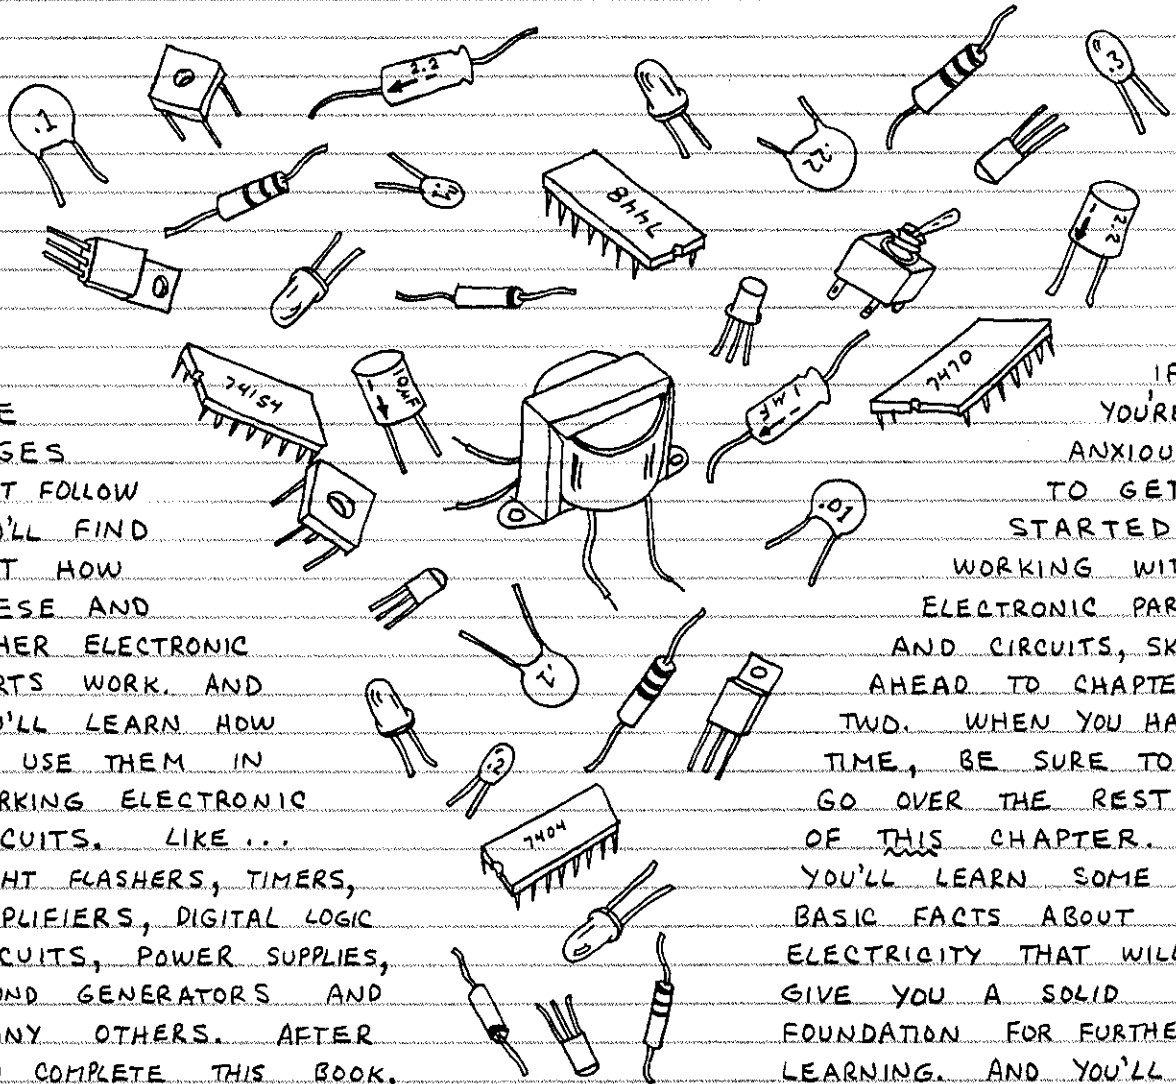 .1
2.2
.3
.22
7448
2.2
74154
10µF
1µF
7470
.01
.1
.2
7404
E
GES
T FOLLOW
'LL FIND
T HOW
ESE AND
HER ELECTRONIC
RTS WORK. AND
U'LL LEARN HOW
USE THEM IN
RKING ELECTRONIC
CUITS. LIKE...
HT FLASHERS, TIMERS,
PLIFIERS, DIGITAL LOGIC
CUITS, POWER SUPPLIES,
UND GENERATORS AND
ANY OTHERS. AFTER
COMPLETE THIS BOOK.
IF
YOU'RE
ANXIOU
TO GET
STARTED
WORKING WIT
ELECTRONIC PAR
AND CIRCUITS, SK
AHEAD TO CHAPTE
TWO. WHEN YOU HA
TIME, BE SURE TO
GO OVER THE REST
OF THIS CHAPTER.
YOU'LL LEARN SOME
BASIC FACTS ABOUT
ELECTRICITY THAT WILL
GIVE YOU A SOLID
FOUNDATION FOR FURTHE
LEARNING. AND YOU'LL